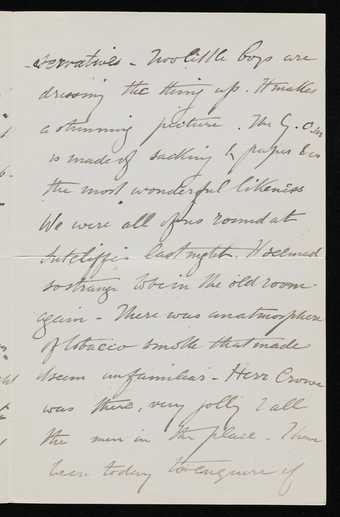 -servatives - Two little boys are
dressing the thing up. It makes
a stunning picture. The G.O.M
is made of sacking & paper & is
the most wonderful likeness
We were all of us round at
Sutcliffe's last night. It seemed
so strange to be in the old room
again - There was an atmosphere
of tobacco smoke that made
it seem unfamiliar - Herr Crowe
was there, very jolly & all
the men in the place - I have
been today to enquire if